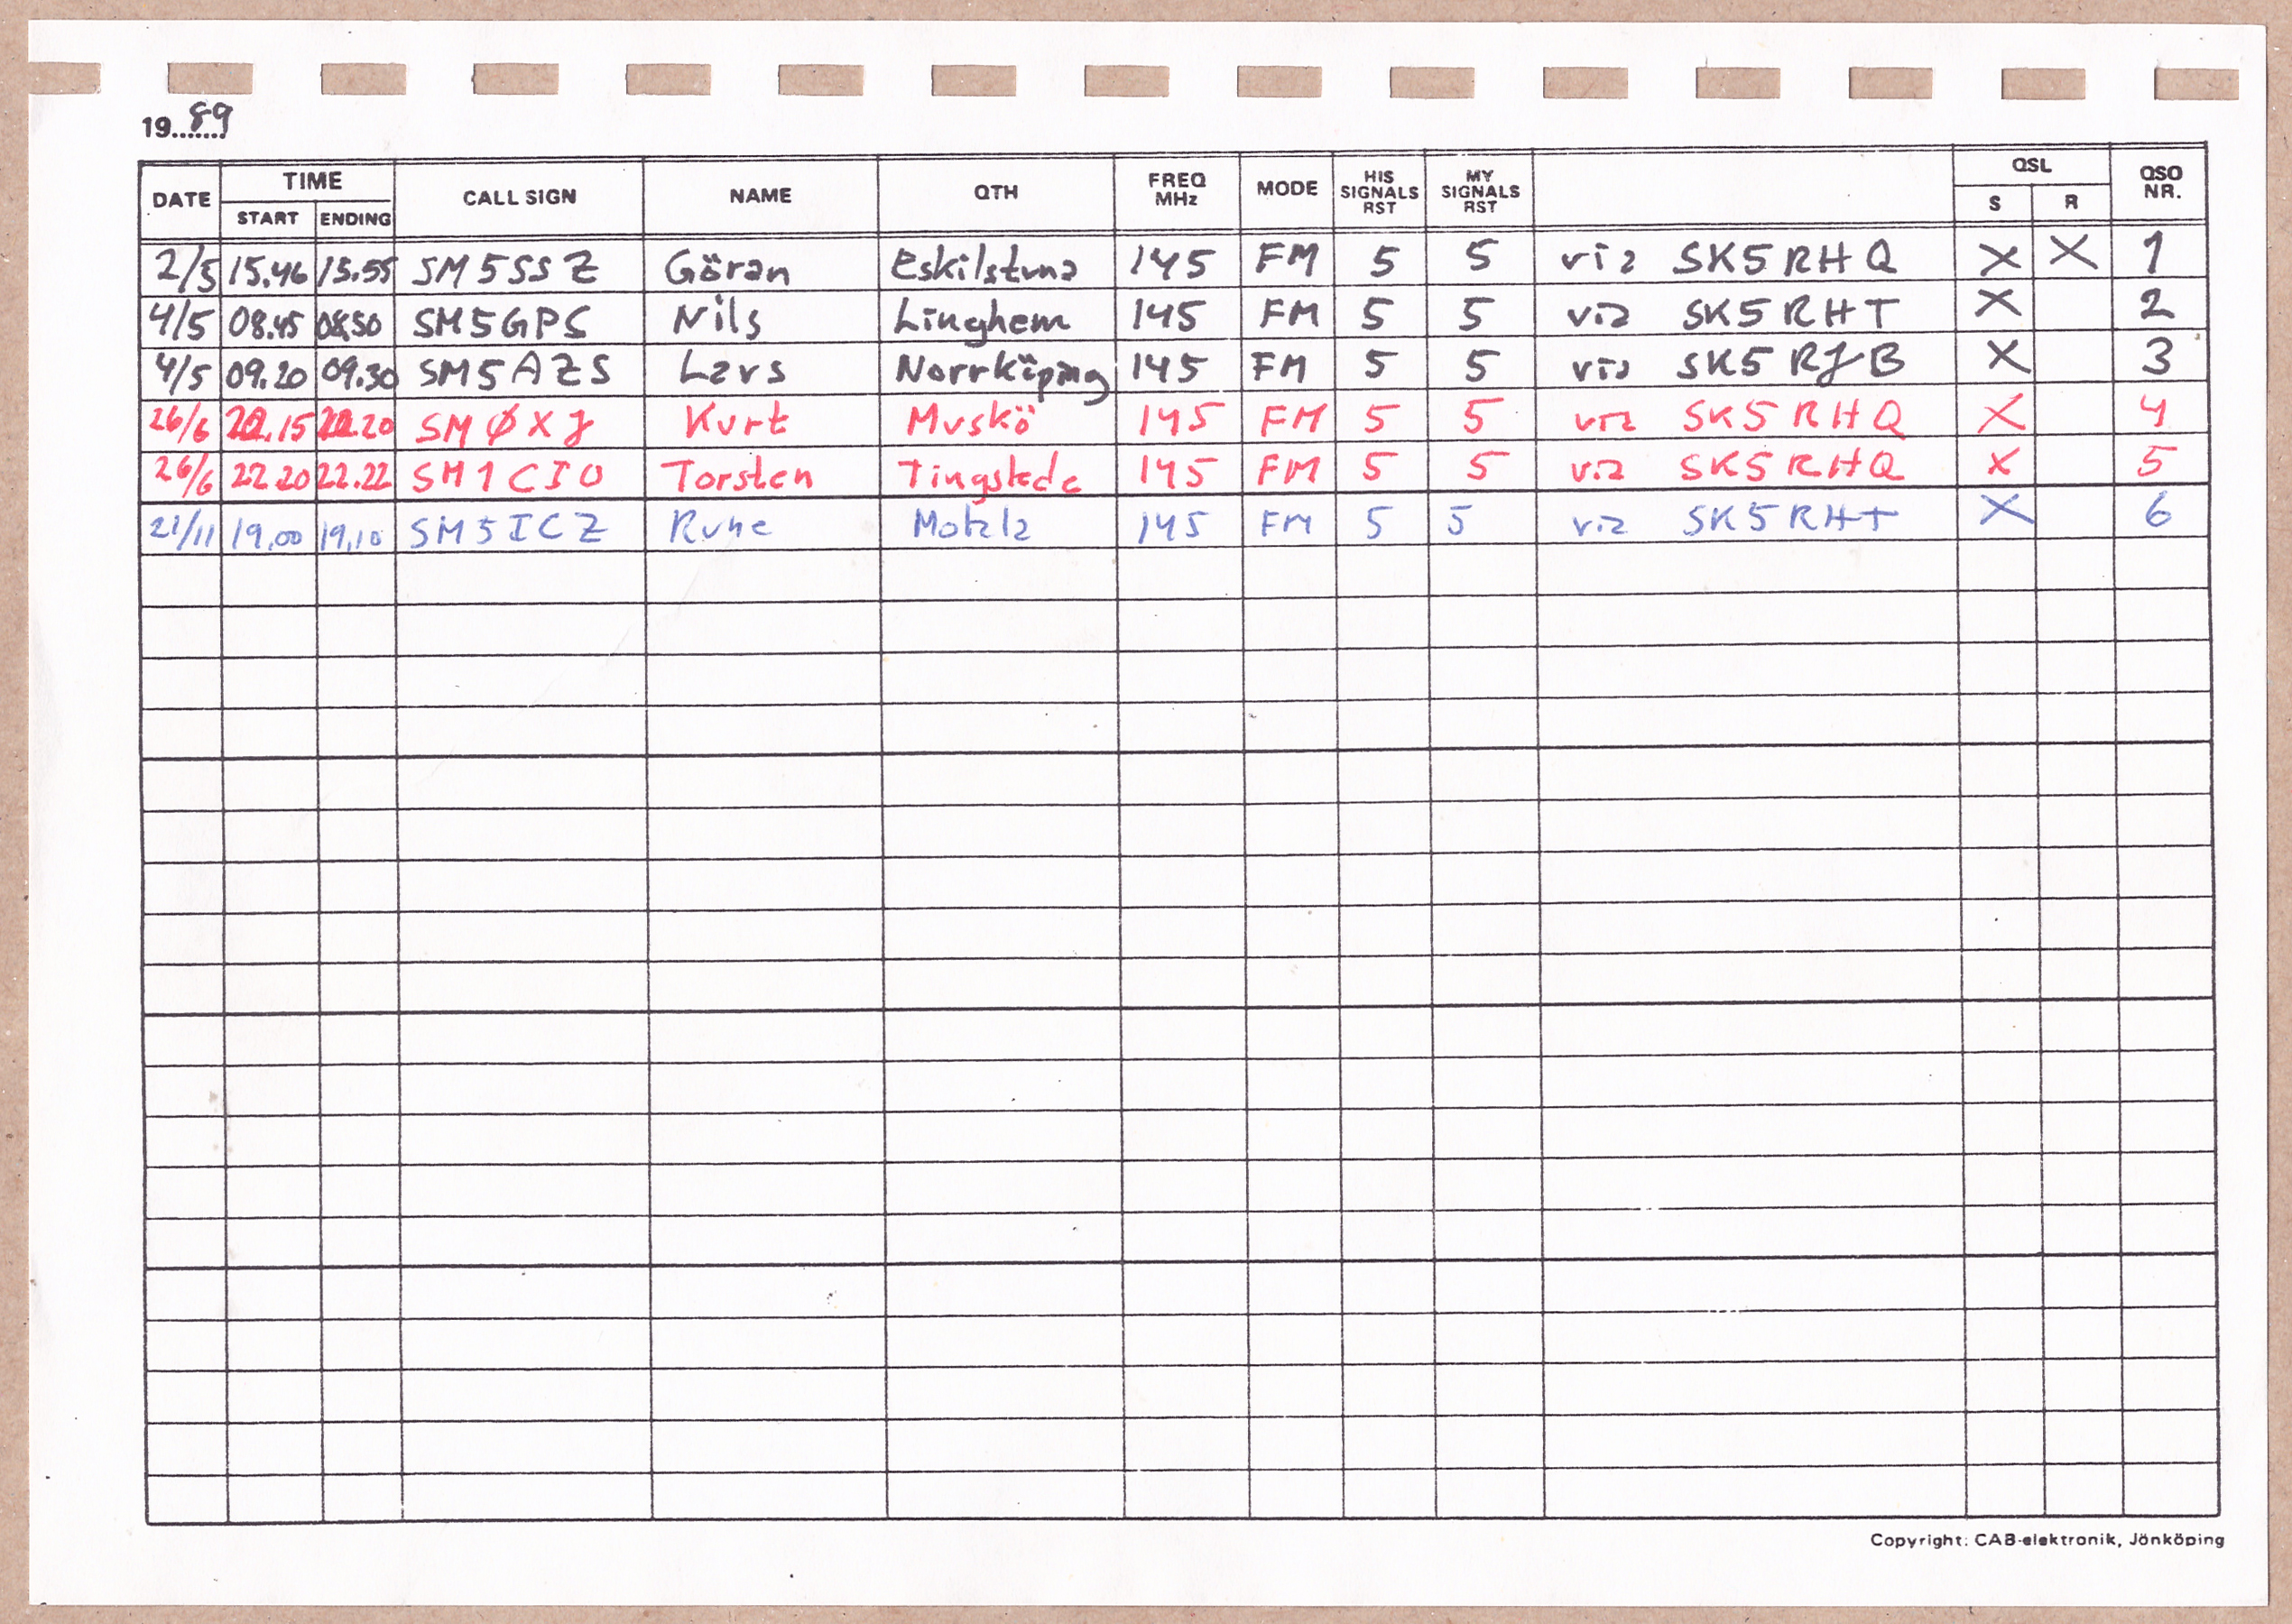 19 89
DATE TIME START ENDING CALL SIGN NAME QTH FREQ MHz MODE HIS SIGNALS RST MY SIGNALS RST QSL S R QSO NR.
2/5 15.46 15.55 SM5SSZ Göran Eskilstuna 145 FM 5 5 via SK5RHQ X X 1
4/5 08.45 08.50 SM5GPS Nils Linghem 145 FM 5 5 via SK5RHT X 2
4/5 09.20 09.30 SM5AZS Lars Norrköping 145 FM 5 5 via SK5RJB X 3
26/6 22.15 22.20 SMØXJ Kurt Muskö 145 FM 5 5 via SK5RHQ X 4
26/6 22.20 22.22 SM1CIO Torsten Tingstede 145 FM 5 5 via SK5RHQ X 5
21/11 19.00 19.10 SM5ICZ Rune Motala 145 FM 5 5 via SK5RHT X 6
Copyright: CAB-elektronik, Jönköping